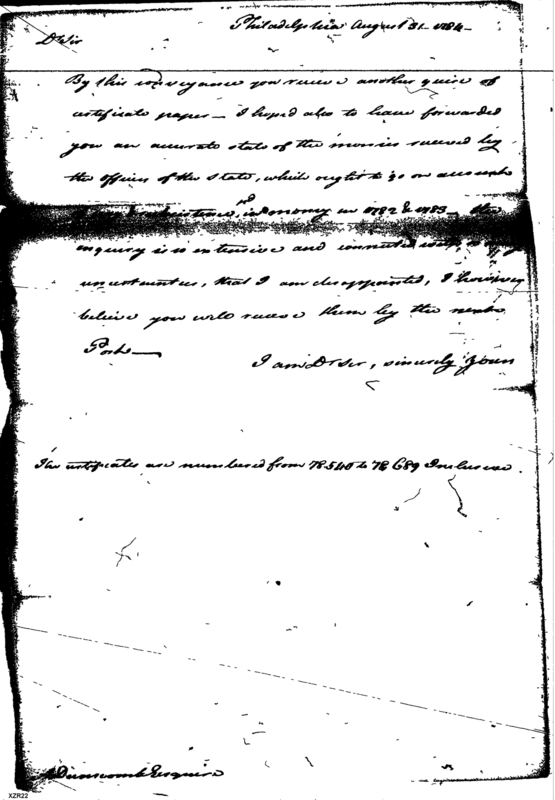 Philadelphia August 31 1784
D Sir
By this conveyance you receive another quire of
certificate paper — I hoped also to have forwarded
you an accurate state of the monies received by
the officers of the State, which ought to go on account
in money in 1782 & 1783 — the
inquiry is so extensive and connected with so
uncertainties, that I am disappointed, I however
believe you will receive them by the next
Post —
I am Dr Sir, sincerely yours
The certificates are numbered from 78540 to 78689 Inclusive.
Dunscomb Esquire
XZR22